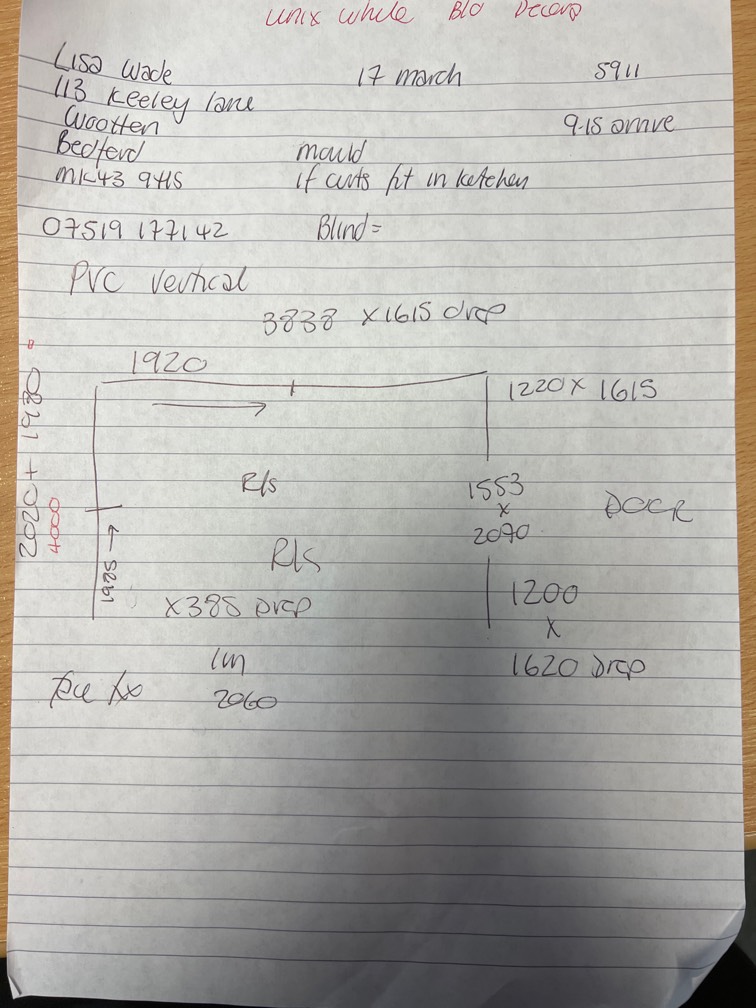 unix while Blo Decora
Lisa Wade 17 march 5911
113 Keeley lane
Wootten 9.15 arrive
Bedford mould
MK43 9HS if cuts fit in ketchen
07519 177142 Blind =
PVC Vertical
3838 x 1615 drop
1920
1220 x 1615
2020 + 1980 =
4000
R/s
1553
x
2090
DOOR
R/s
1985 →
x 385 Drop
1200
x
1620 Drop
1m
2060